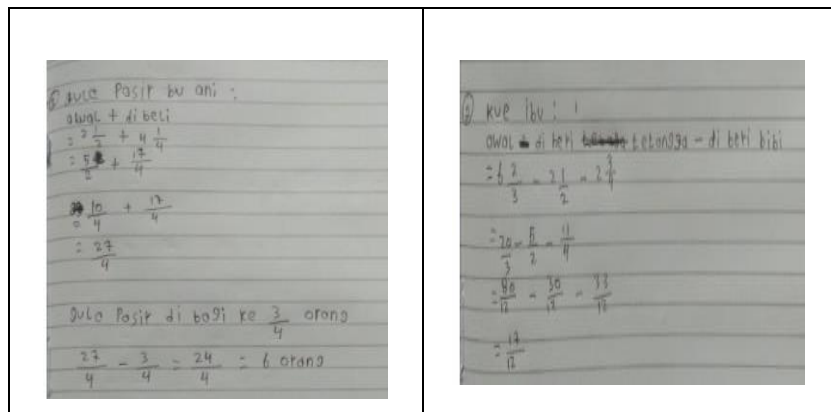 ⑥ gula Pasir bu ani :
awal + di beli
= 2 1/2 + 4 1/4
= 5/2 + 17/4
= 10/4 + 17/4
= 27/4
Gula Pasir di bagi ke 3/4 orang
27/4 - 3/4 = 24/4 = 6 orang
⑦ kue ibu :
awal - di beri tetangga - di beri bibi
= 6 2/3 - 2 1/2 - 2 3/4
= 20/3 - 5/2 - 11/4
= 80/12 - 30/12 - 33/12
= 17/12